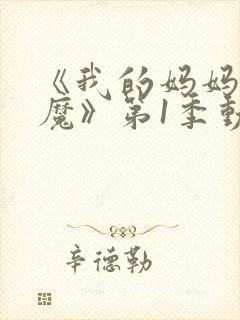 《我的妈妈
魔》第1季動
辛德勒